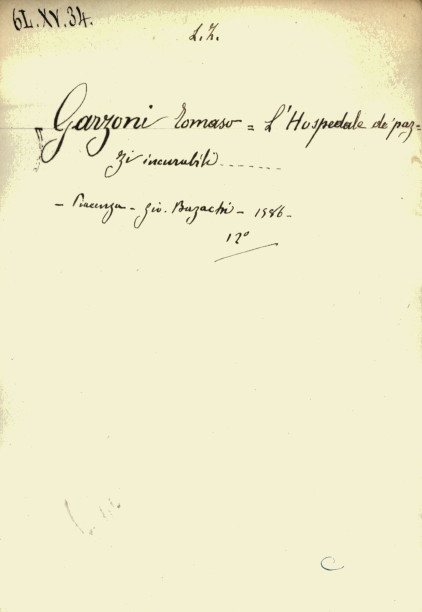 6L.XV.34.
L.Z.
Garzoni Tomaso = L'Hospedale de' paz=
zi incurabili ------
- Piacenza - Gio. Bazachi - 1586 -
12°
C